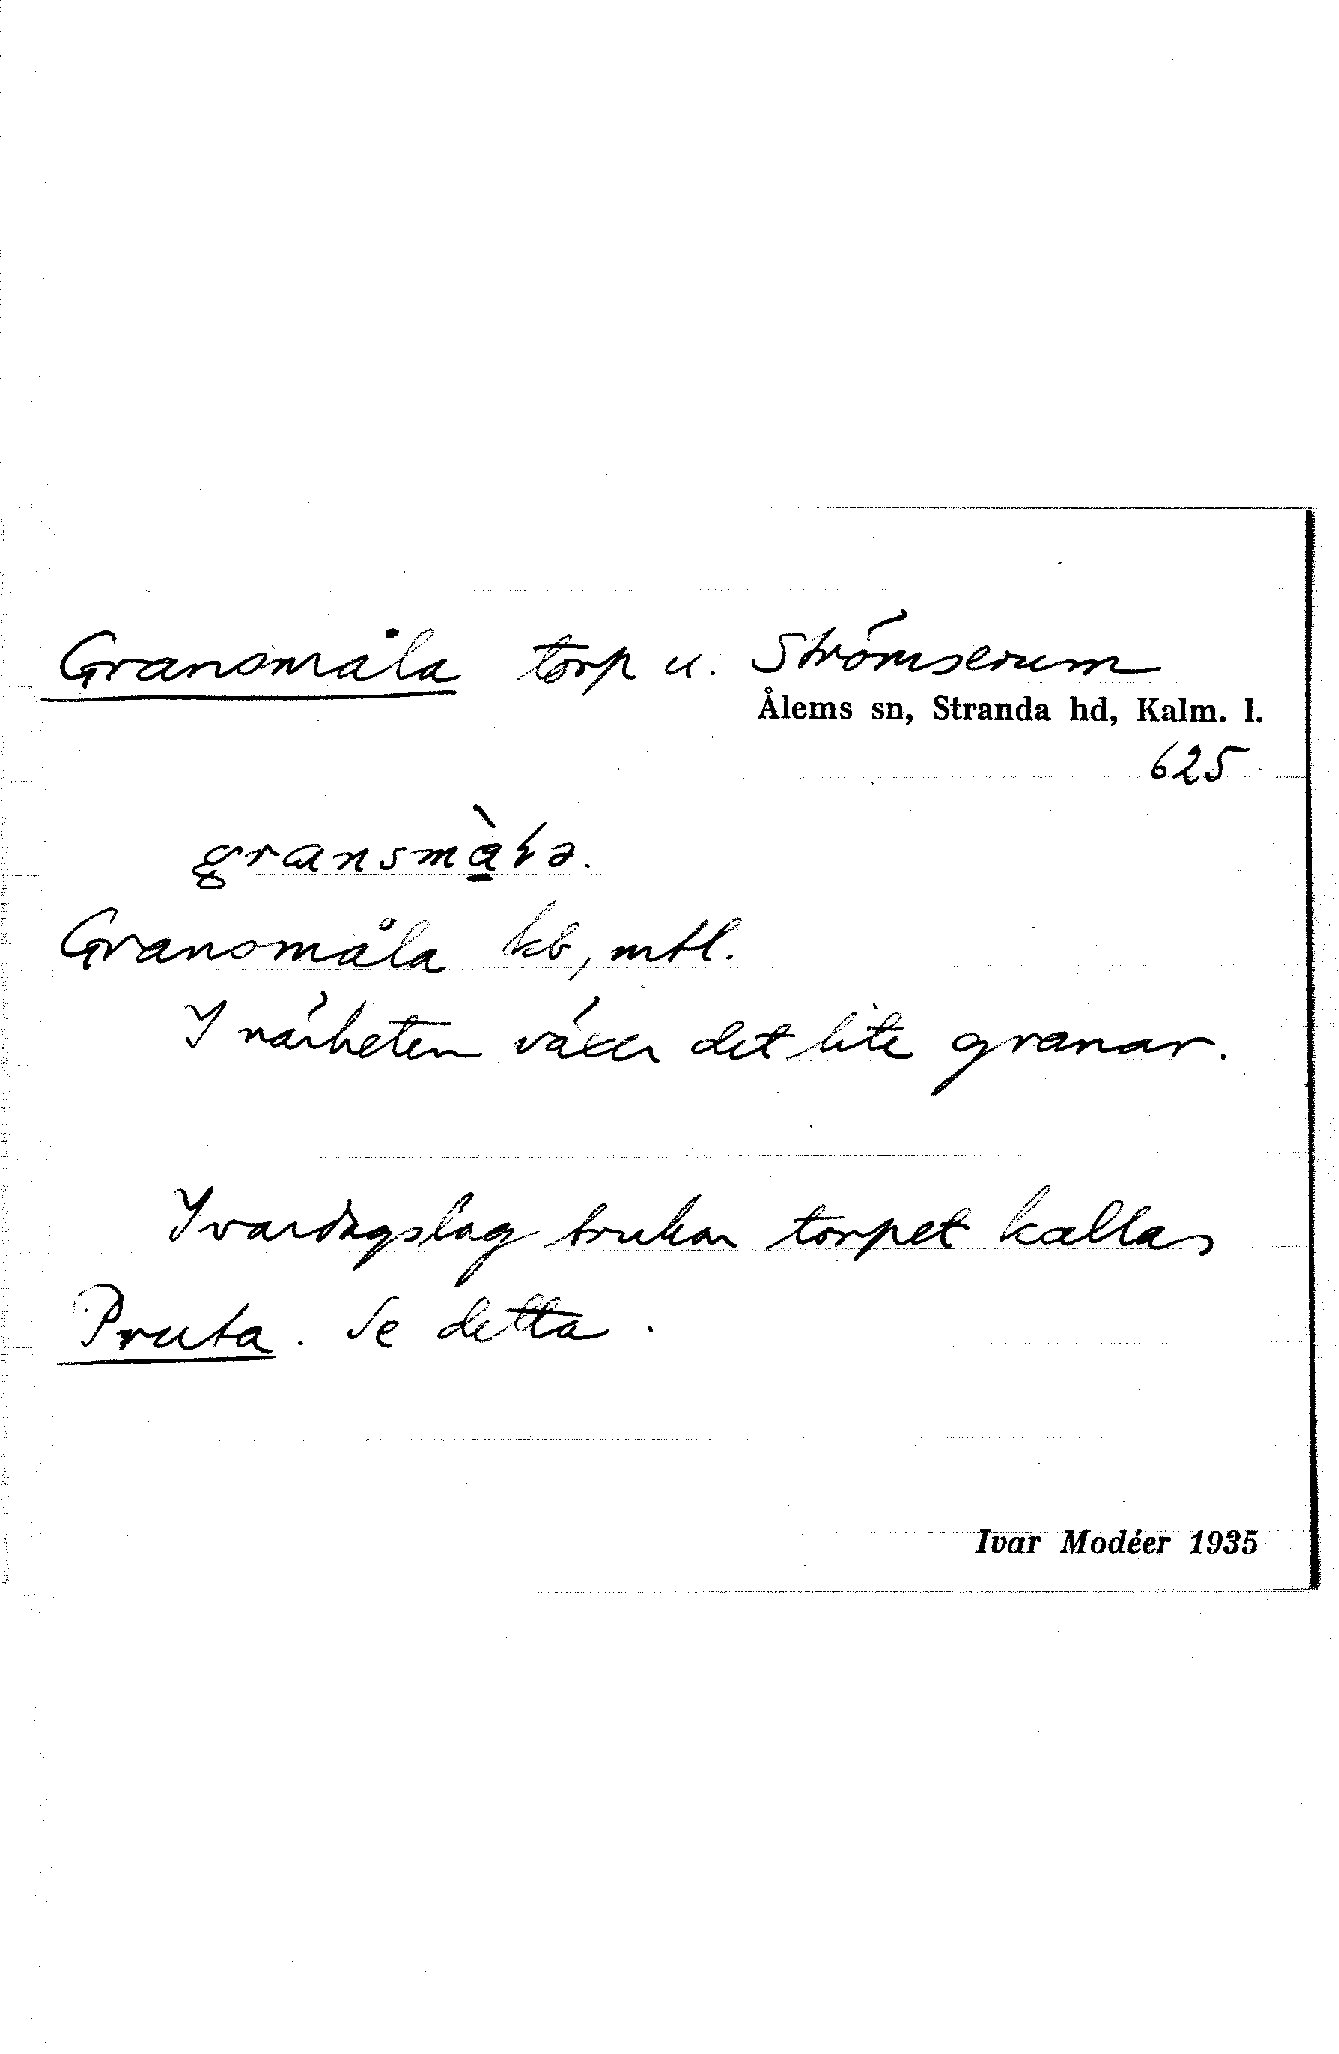 Gransmåla torp u. Strömserum
Ålems sn, Stranda hd, Kalm. l.
625
gransmàla.
Gransmåla kb, mtl.
I närheten växer det lite granar.
I vardagslag brukar torpet kallas
Pruta. Se detta.
Ivar Modéer 1935